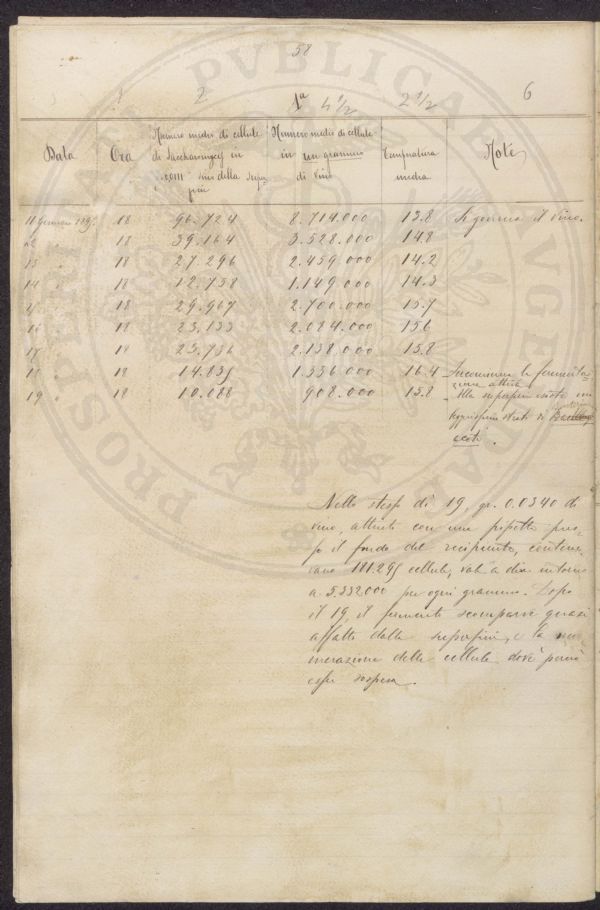 58
1 2 1ª 4 1/2 2 1/2 6
Data Ora Numero medio di cellule di Saccharomyces in 0.0111 della super Numero medio di cellule in un grammo di vino Temperatura media Note
11 Gennaio 18 96.724 8.714.000 13.8 Si governa il vino.
12 " 18 39.164 3.528.000 14.8
13 " 18 27.296 2.459.000 14.2
14 " 18 12.758 1.149.000 14.3
18 29.967 2.700.000 15.7
16 18 23.133 2.084.000 15.6
17 18 23.736 2.138.000 15.8
18 14.835 1.336.000 16.4 Incomincia la fermenta-
zione attiva
19 " 18 10.088 908.000 15.8 Alla superficie esiste un
leggerissimo strato di
aceti.
Nello stesso dì 19, gr. 0.0340 di
vino, attinti con una pipetta pres-
so il fondo del recipiente, contene-
vano 181.295 cellule, vale a dire intorno
a 5.332000 per ogni grammo. Dopo
il 19, il fermento scomparve quasi
affatto dalla superficie, e la nu-
merazione delle cellule dovè perciò
esser sospesa.
PROSPERITATI PVBLICAE AVGENDAE